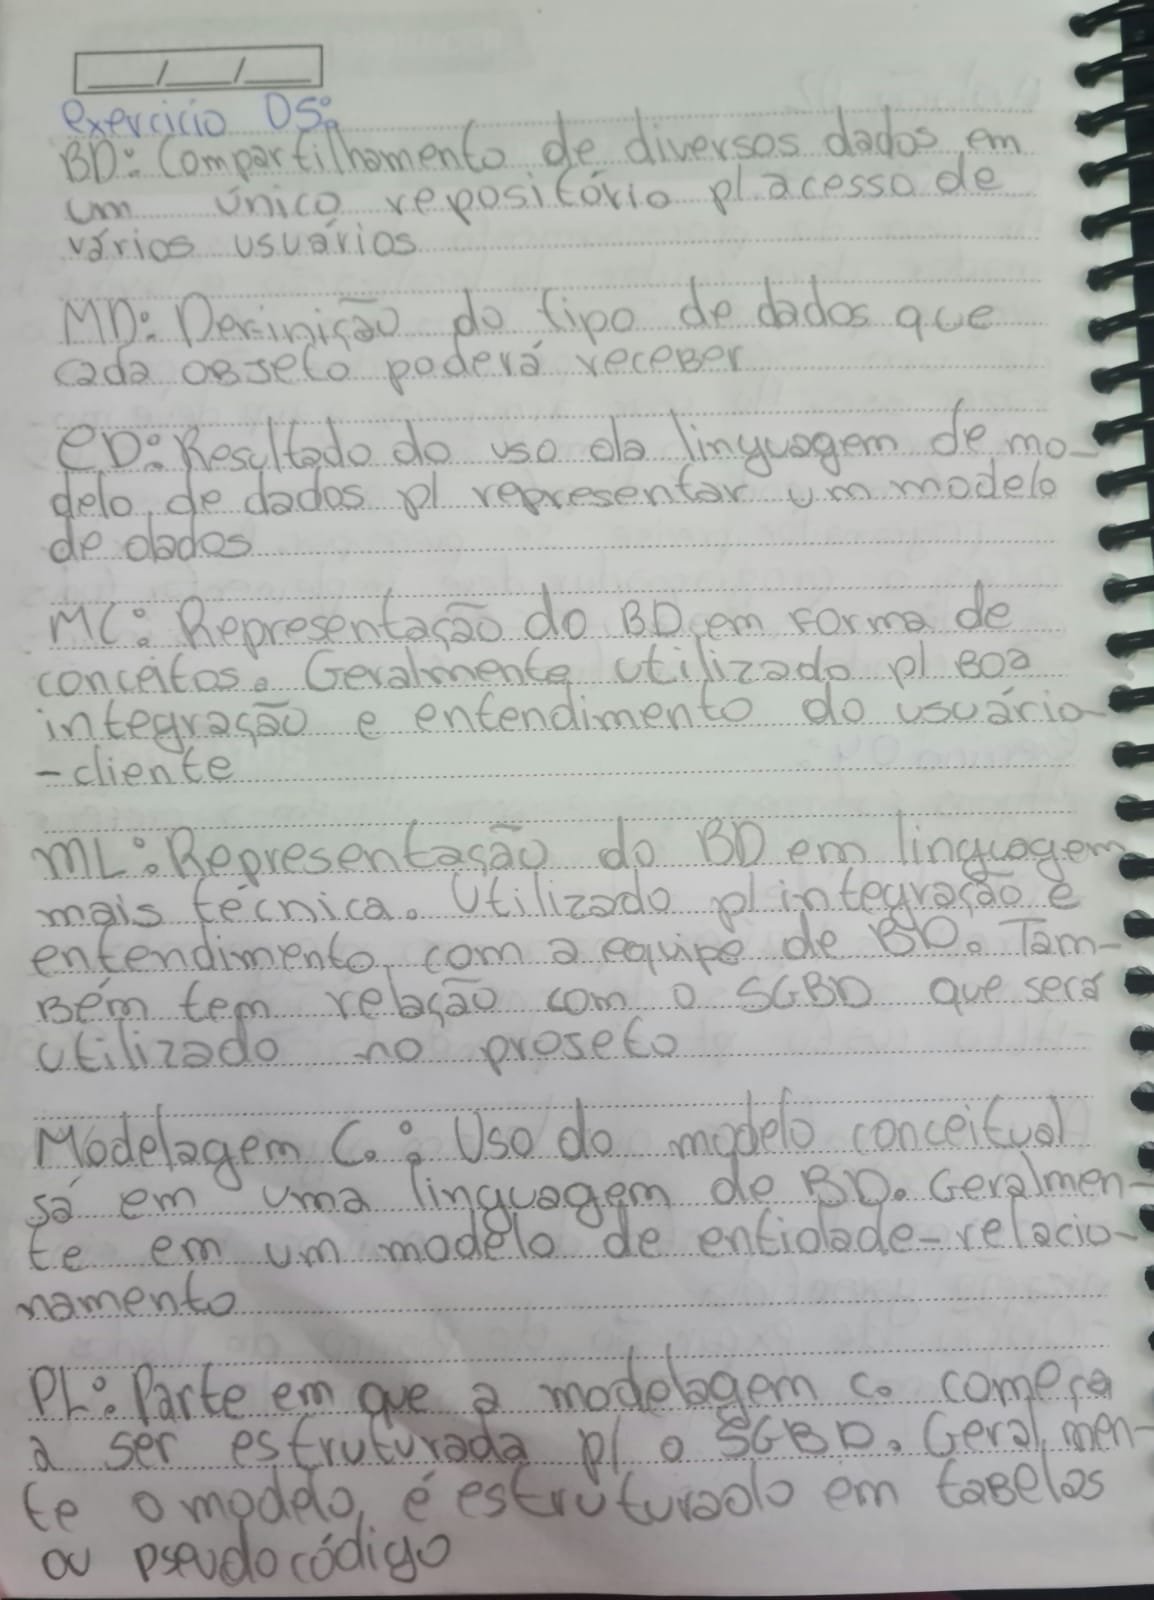 __/__/__
exercicio 05:
BD: Compartilhamento de diversos dados em
um único repositório p/ acesso de
vários usuários
MD: Definição do tipo de dados que
cada objeto poderá receber
ED: Resultado do uso da linguagem de mo-
delo de dados p/ representar um modelo
de dados
MC: Representação do BD em forma de
conceitos. Geralmente utilizado p/ boa
integração e entendimento do usuário
-cliente
ML: Representação do BD em linguagem
mais técnica. Utilizado p/ integração e
entendimento com a equipe de BD. Tam-
bém tem relação com o SGBD que será
utilizado no projeto
Modelagem C.: Uso do modelo conceitual
já em uma linguagem de BD. Geralmen-
te em um modelo de entidade-relacio-
namento
PL: Parte em que a modelagem c. começa
a ser estruturada p/ o SGBD. Geralmen-
te o modelo é estruturado em tabelas
ou pseudocódigo